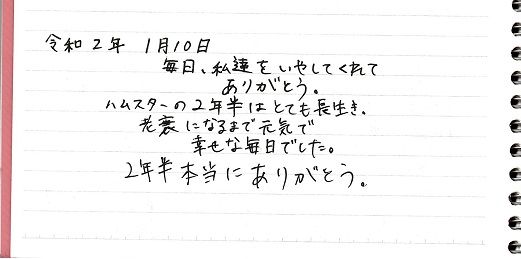 令和2年 1月10日
毎日、私達をいやしてくれて
ありがとう。
ハムスターの2年半はとても長生き.
老衰になるまで元気で
幸せな毎日でした。
2年半本当にありがとう。